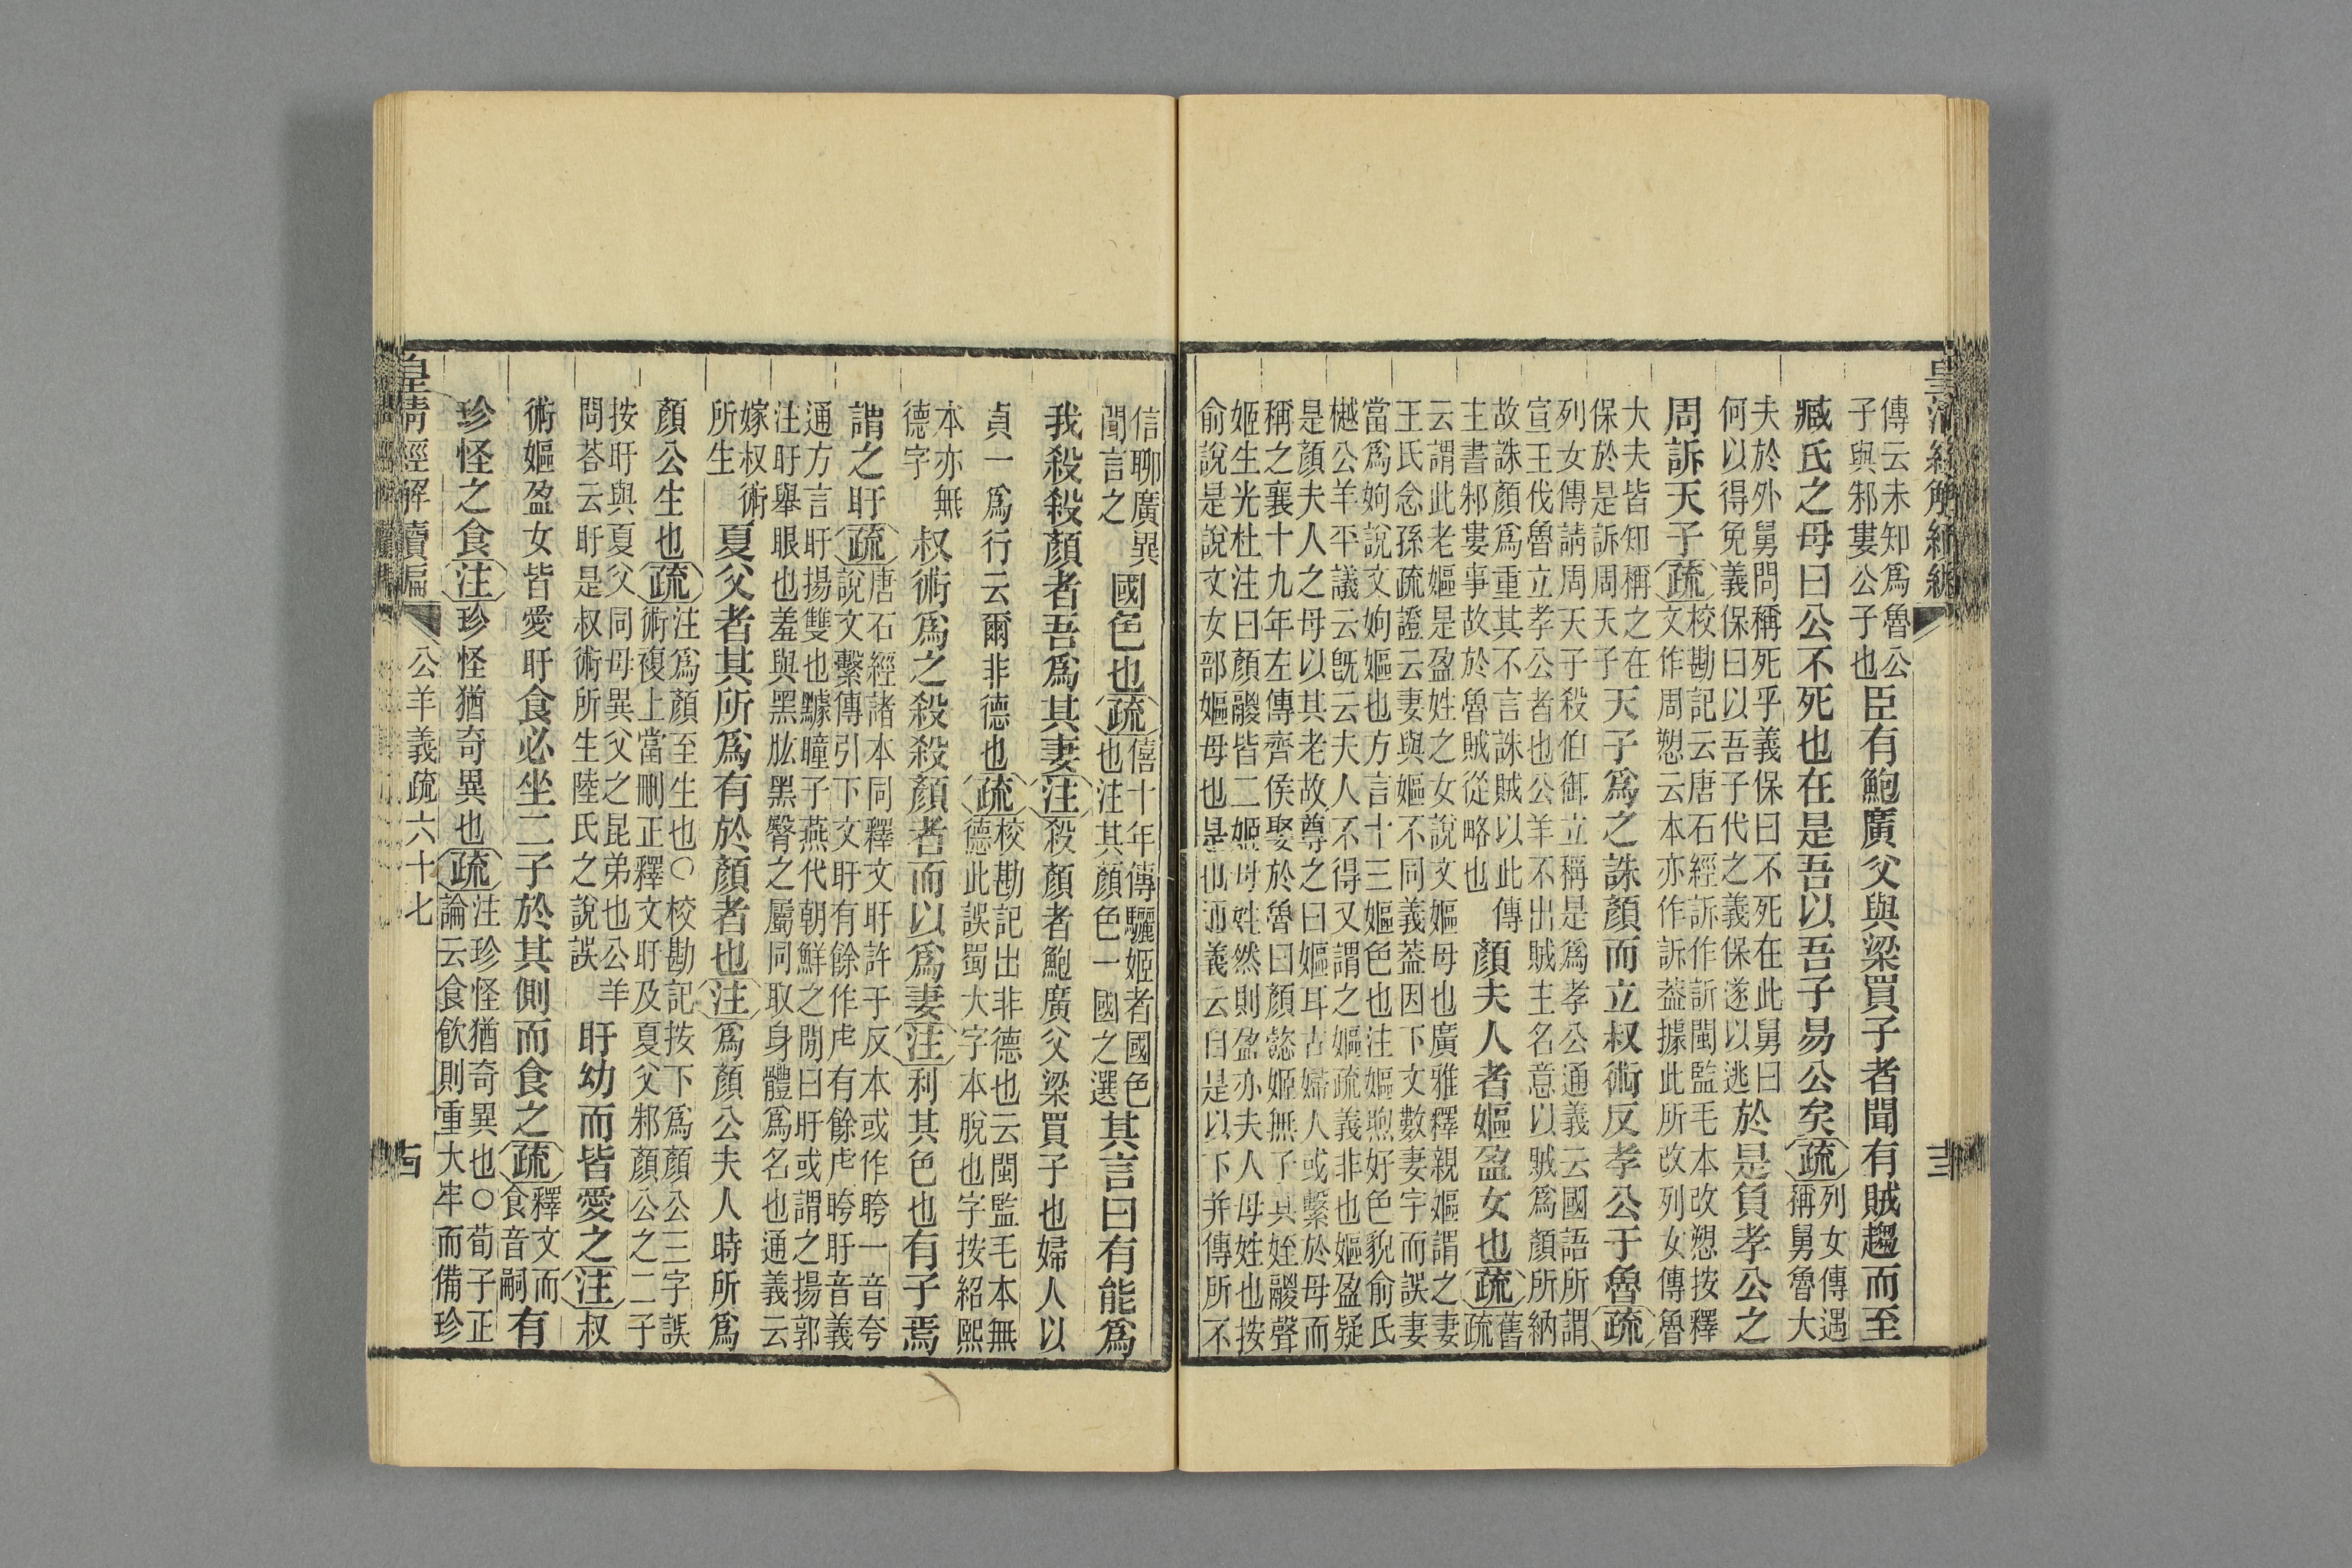 傳云未知爲魯公
子與邾婁公子也
臣有鮑廣父與梁買子者聞有賊趨而至
臧氏之母曰公不死也在是吾以吾子易公矣疏
列女傳遇
稱舅魯大
夫於外舅問稱死乎義保曰不死在此舅曰
何以得免義保曰以吾子代之義保遂以逃
於是負孝公之
周訴天子疏
校勘記云唐石經訴作訢閩監毛本改愬按釋
文作周愬云本亦作訴葢據此所改列女傳魯
大夫皆知稱之在
保於是訴周天子
天子爲之誅顏而立叔術反孝公于魯疏
列女傳請周天子殺伯御立稱是爲孝公通義云國語所謂
宣王伐魯立孝公者也公羊不出賊主名意以賊爲顏所納
故誅顏爲重其不言誅賊以此傳
主書邾婁事故於魯賊從略也
顏夫人者嫗盈女也疏
舊
疏
云謂此老嫗是盈姓之女說文嫗母也廣雅釋親嫗謂之妻
王氏念孫疏證云妻與嫗不同義葢因下文數妻字而誤妻
當爲姁說文姁嫗也方言十三嫗色也注嫗煦好色貌俞氏
樾公羊平議云旣云夫人不得又謂之嫗疏義非也嫗盈疑
是顏夫人之母以其老故尊之曰嫗耳古婦人或繫於母而
稱之襄十九年左傳齊侯娶於魯曰顏懿姬無子其姪鬷聲
姬生光杜注曰顏鬷皆二姬母姓然則盈亦夫人母姓也按
俞說是說文女部嫗母也是也通義云自是以下并傳所不
信聊廣異
聞言之
國色也疏
僖十年傳驪姬者國色
也注其顏色一國之選
其言曰有能爲
我殺殺顏者吾爲其妻注殺顏者鮑廣父梁買子也婦人以
貞一爲行云爾非德也疏
校勘記出非德也云閩監毛本無
德此誤蜀大字本脫也字按紹熙
本亦無
德字
叔術爲之殺殺顏者而以爲妻注利其色也有子焉
謂之盱疏
唐石經諸本同釋文盱許于反本或作晇一音夸
說文繫傳引下文盱有餘作虍有餘虍晇盱音義
通方言盱揚雙也驢瞳子燕代朝鮮之閒曰盱或謂之揚郭
注盱舉眼也羞與黑肱黑臀之屬同取身體爲名也通義云
嫁叔術
所生
夏父者其所爲有於顏者也注爲顏公夫人時所爲
顏公生也疏
注爲顏至生也○校勘記按下爲顏公三字誤
術複上當刪正釋文盱及夏父邾顏公之二子
按盱與夏父同母異父之昆弟也公羊
問荅云盱是叔術所生陸氏之說誤
盱幼而皆愛之注叔
術嫗盈女皆愛盱食必坐二子於其側而食之疏
釋文而
食音嗣
有
珍怪之食注珍怪猶奇異也疏
注珍怪猶奇異也○荀子正
論云食飲則重大牢而備珍
皇清經解續編
公羊義疏六十七